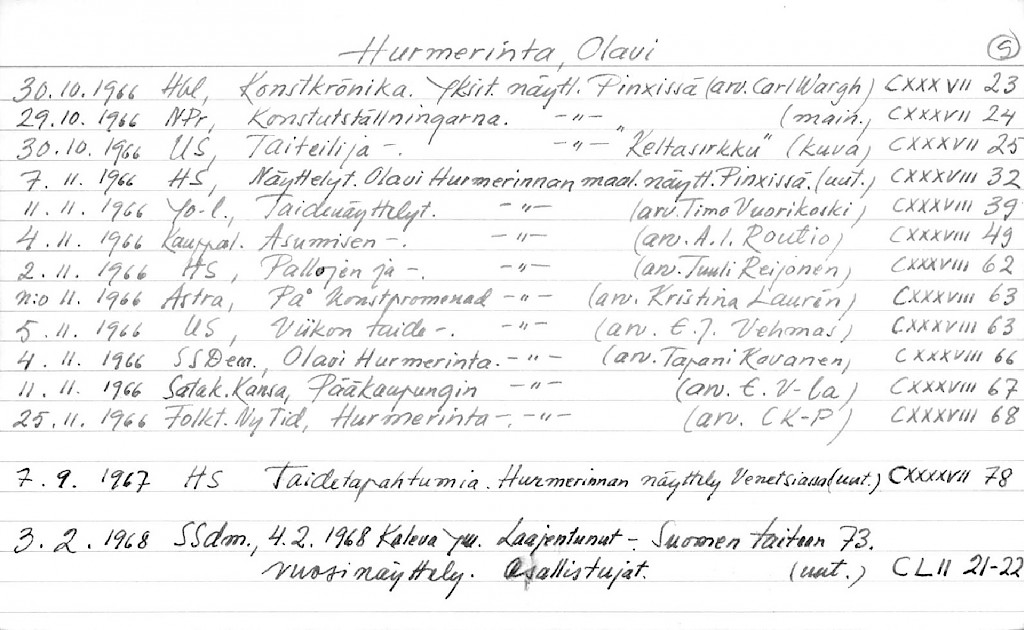 Hurmerinta, Olavi 9
30.10.1966 Hbl, Konstkrönika. Yksit. näytt. Pinxissä (arv. Carl Wargh) CXXXVII 23
29.10.1966 NPr, Konstutställningarna. -"- (main.) CXXXVII 24
30.10.1966 US, Taiteilija -. -"- "Keltasirkku" (kuva) CXXXVII 25
7.11.1966 HS, Näyttelyt. Olavi Hurmerinnan maal. näytt. Pinxissä. (uut.) CXXXVIII 32
11.11.1966 Yo-l., Taidenäyttelyt. -"- (arv. Timo Vuorikoski) CXXXVIII 39
4.11.1966 Kauppal. Asumisen -. -"- (arv. A.I. Routio) CXXXVIII 49
2.11.1966 HS, Pallojen ja -. -"- (arv. Tuuli Reijonen) CXXXVIII 62
n:o 11.1966 Astra, På konstpromenad -"- (arv. Kristina Laurén) CXXXVIII 63
5.11.1966 US, Viikon taide -. -"- (arv. E.J. Vehmas) CXXXVIII 63
4.11.1966 SSDem., Olavi Hurmerinta. -"- (arv. Tapani Kovanen) CXXXVIII 66
11.11.1966 Satak. Kansa, Pääkaupungin -"- (arv. E. V-la) CXXXVIII 67
25.11.1966 Folkt. Ny Tid, Hurmerinta -. -"- (arv. CK-P) CXXXVIII 68
7.9.1967 HS Taidetapahtumia. Hurmerinnan näyttely Venetsiassa (uut.) CXXXXVII 78
3.2.1968 SSdm., 4.2.1968 Kaleva ym. Laajentunut -. Suomen taiteen 73.
vuosinäyttely. Osallistujat. (uut.) CLII 21-22